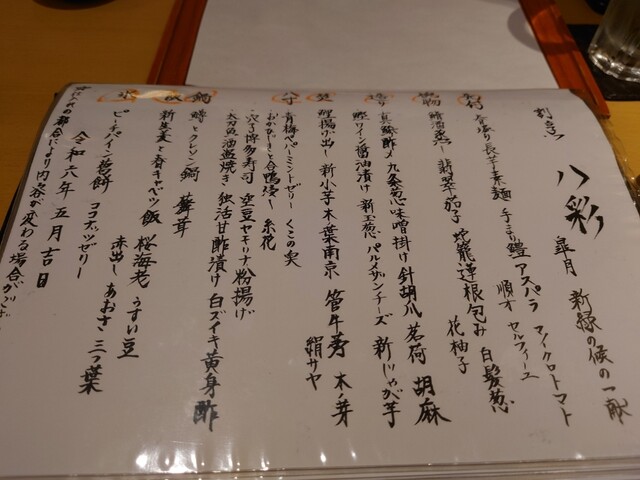 割烹 八彩 皐月 新緑の候の一献
先付
春掘り長芋素麺 手こり鱧 アスパラ マイクロトマト
順才 セルフィーユ
椀物
酒蒸し 翡翠茄子 蛇籠蓮根包み 白髪葱
花柚子
造り
真鯵酢〆 九条葱味噌掛け 針胡瓜 茗荷 胡麻
鰹ワイン醤油漬け 新玉葱 パルメザンチーズ 新じゃが芋
焚
鯉揚げ出し 新小芋 木葉南京 管牛蒡 木ノ芽
絹サヤ
八寸
青梅ペパーミントゼリー くこの実
おかひじきと合鴨浸し 糸花
穴子博多寿司 空豆ヤキリナ粉揚げ
太刀魚酒盗焼き 独活甘酢漬け 白ズイキ黄身酢
鍋
鱒とクレソン鍋 舞茸
飯
新生姜と春キャベツ飯 桜海老 うすい豆
赤出し あおさ 三つ葉
水
ピーチパイン葛餅 ココナッツゼリー
令和六年 五月吉日
の都合により内容が変わる場合がござ